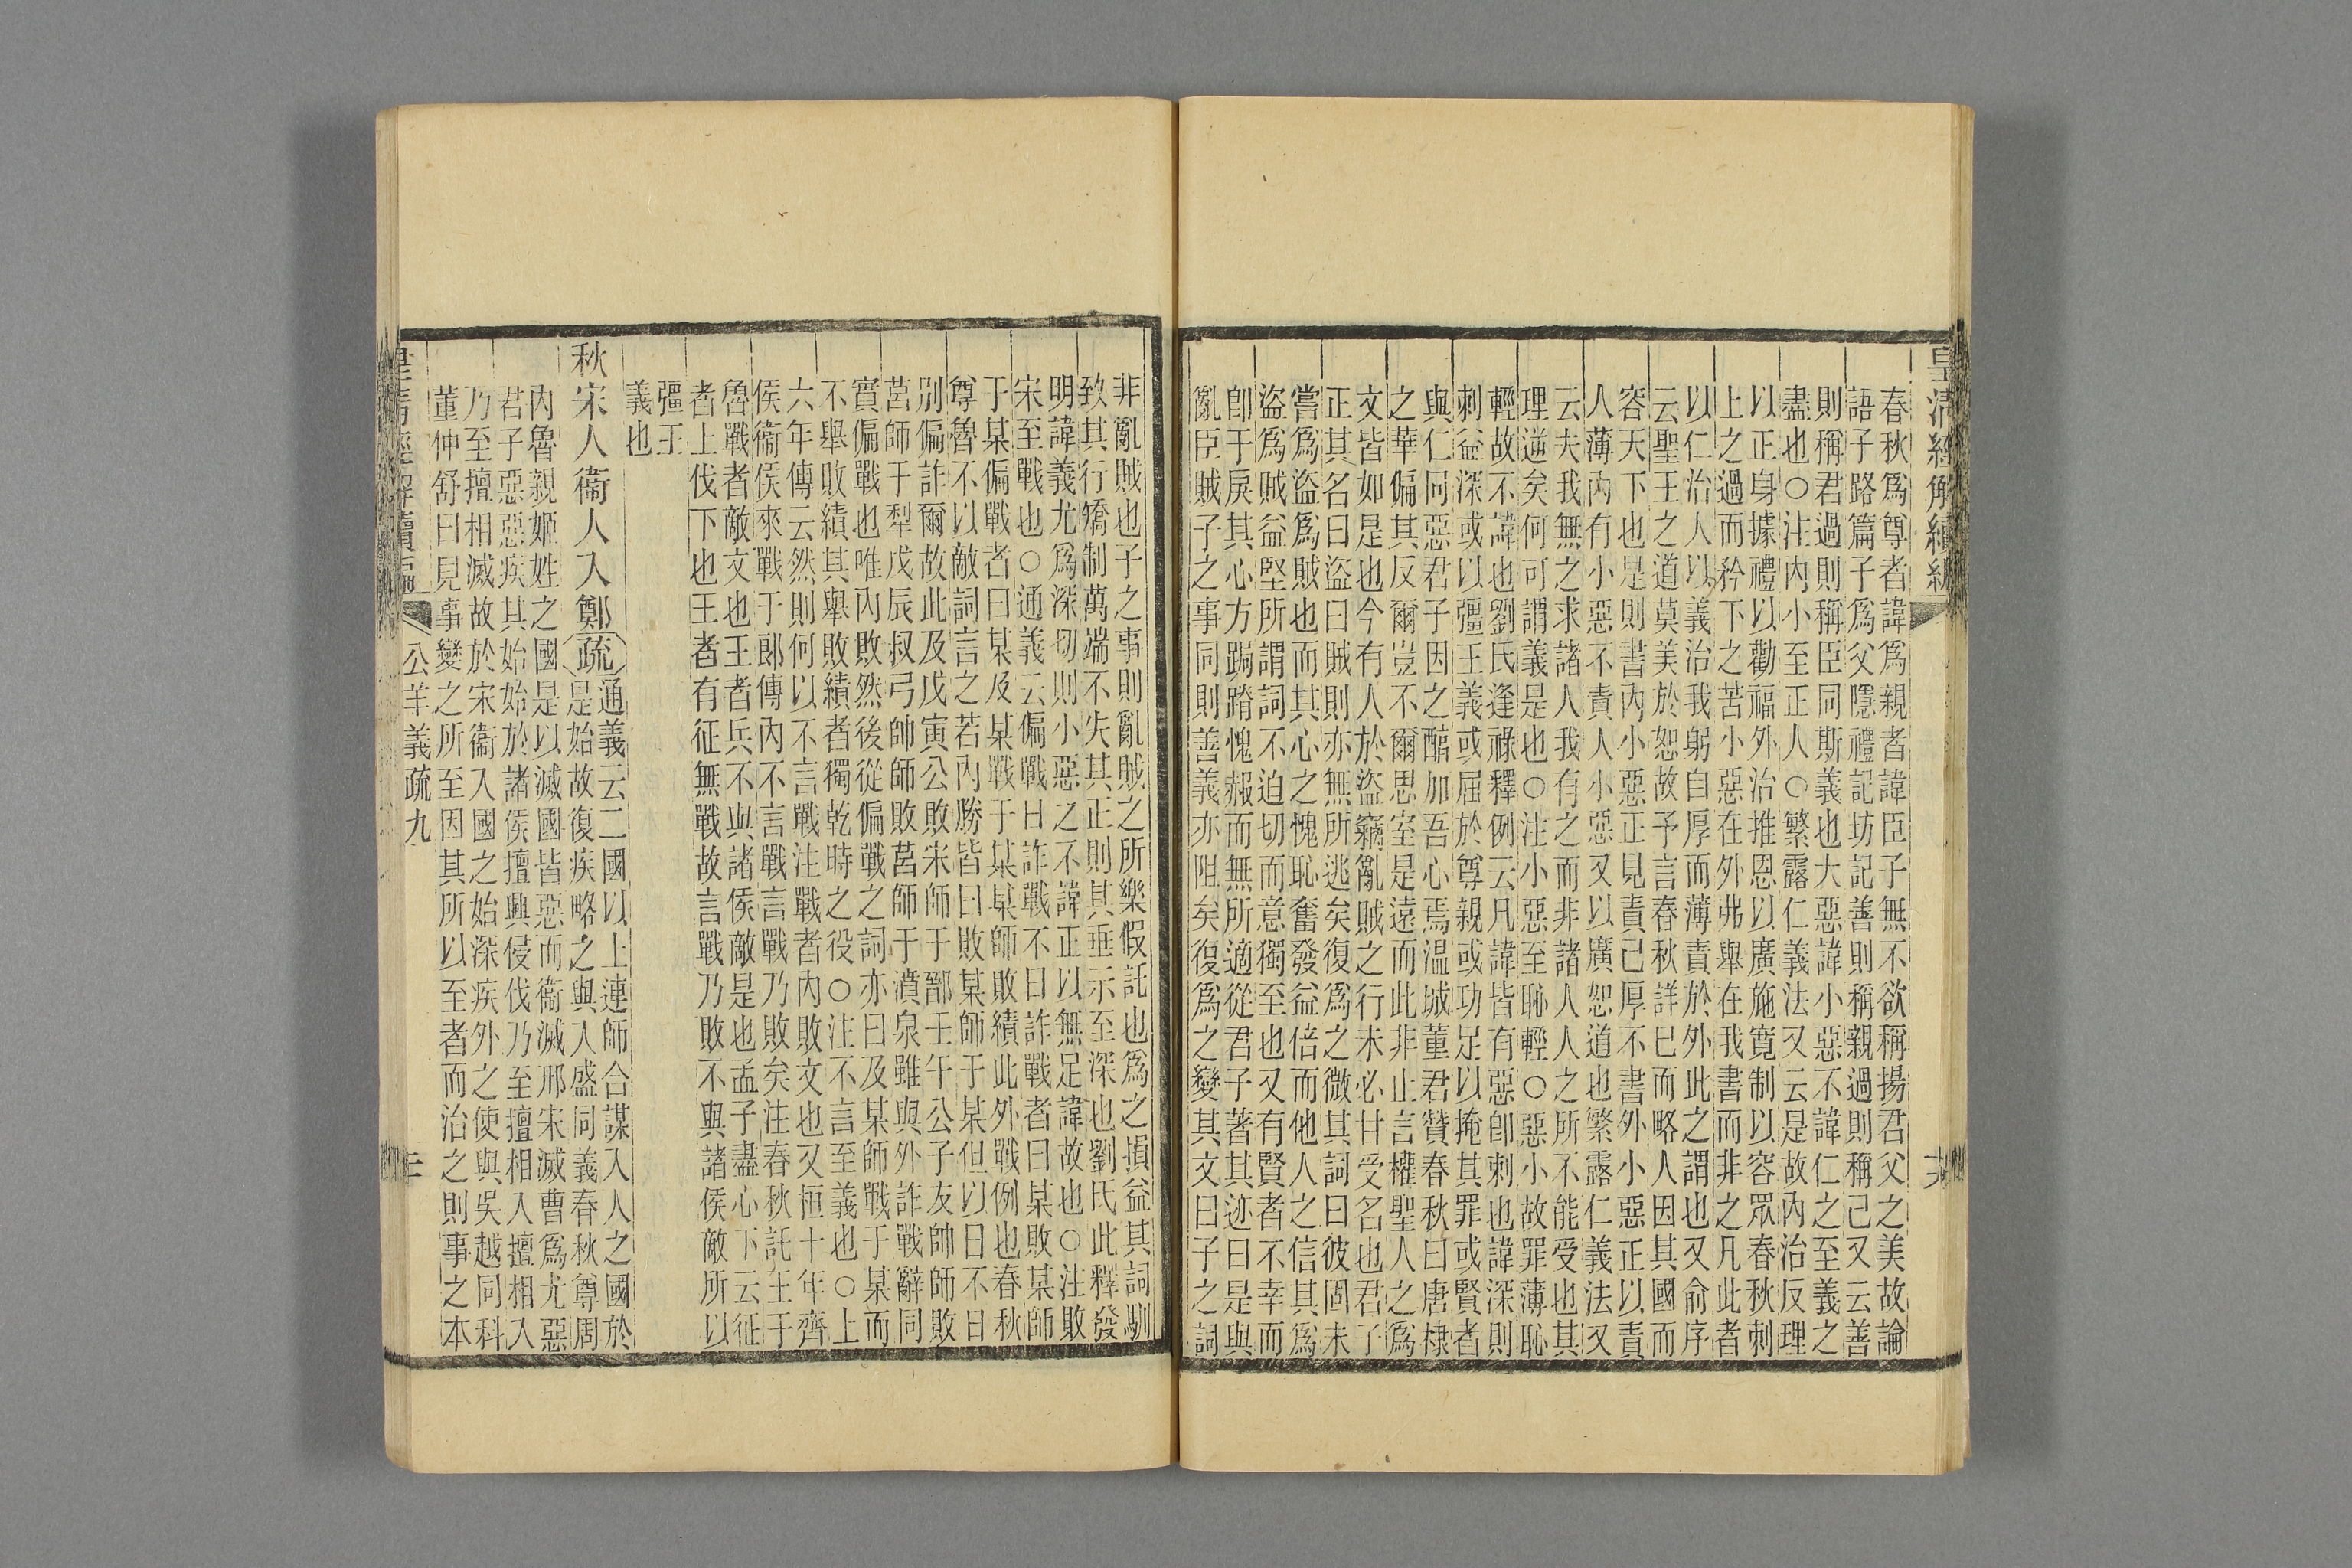 皇清經解續編
春秋爲尊者諱爲親者諱臣子無不欲稱揚君父之美故論
語子路篇子爲父隱禮記坊記善則稱親過則稱己又云善
則稱君過則稱臣同斯義也大惡諱小惡不諱仁之至義之
盡也○注內小至正人○繁露仁義法又云是故內治反理
以正身據禮以勸福外治推恩以廣施寬制以容眾春秋刺
上之過而矜下之苦小惡在外弗舉在我書而非之凡此者
以仁治人以義治我躬自厚而薄責於外此之謂也又俞序
云聖王之道莫美於恕故予言春秋詳己而略人因其國而
容天下也是則書內小惡正見責己厚不書外小惡正以責
人薄內有小惡不責人小惡又以廣恕道也繁露仁義法又
云夫我無之求諸人我有之而非諸人人之所不能受也其
理逆矣何可謂義是也○注小惡至恥輕○惡小故罪薄恥
輕故不諱也劉氏逢祿釋例云凡諱皆有惡卽刺也諱深則
刺益深或以彊王義或屈於尊親或功足以掩其罪或賢者
與仁同惡君子因之酷加吾心焉溫城董君贊春秋曰唐棣
之華偏其反爾豈不爾思室是遠而此非止言權聖人之爲
文皆如是也今有人於盜竊亂賊之行未必甘受名也君子
正其名曰盜曰賊則亦無所逃矣復爲之微其詞曰彼固未
嘗爲盜爲賊也而其心之愧恥奮發益倍而他人之信其爲
盜爲賊益堅所謂詞不迫切而意獨至也又有賢者不幸而
卽于戾其心方跼蹐愧赧而無所適從君子著其迹曰是與
亂臣賊子之事同則善義亦阻矣復爲之變其文曰子之詞
非亂賊也子之事則亂賊之所樂假託也爲之損益其詞馴
致其行矯制萬端不失其正則其垂示至深也劉氏此釋發
明諱義尤爲深切則小惡之不諱正以無足諱故也○注敗
宋至戰也○通義云偏戰日詐戰不日詐戰者曰某敗某師
于某偏戰者曰某及某戰于某某師敗績此外戰例也春秋
尊魯不以敵詞言之若內勝皆曰敗某師于某但以日不日
別偏詐爾故此及戊寅公敗宋師于鄑壬午公子友帥師敗
莒師于犁戊辰叔弓帥師敗莒師于濆泉雖與外詐戰辭同
實偏戰也唯內敗然後從偏戰之詞亦曰及某師戰于某而
不舉敗績其舉敗績者獨乾時之役○注不言至義也○上
六年傳云然則何以不言戰注戰者內敗文也又桓十年齊
侯衞侯來戰于郞傳內不言戰言戰乃敗矣注春秋託王于
魯戰者敵文也王者兵不與諸侯敵是也孟子盡心下云征
者上伐下也王者有征無戰故言戰乃敗不與諸侯敵所以
彊王
義也
秋宋人衞人入鄭疏通義云二國以上連師合謀入人之國於
是始故復疾略之與入盛同義春秋尊周
內魯親姬姓之國是以滅國皆惡而衞滅邢宋滅曹爲尤惡
君子惡惡疾其始始於諸侯擅興侵伐乃至擅相入擅相入
乃至擅相滅故於宋衞入國之始深疾外之使與吳越同科
董仲舒曰見事變之所至因其所以至者而治之則事之本
公羊義疏九